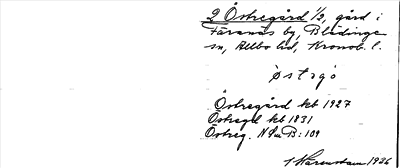 2 Östregård 1/3, gård i
Färanäs by, Blädinge
sn, Allbo hd, Kronob. l.
östrgö
Östregård kb 1927
Östregd kb 1831
Östreg. N Sm B: 109
1936